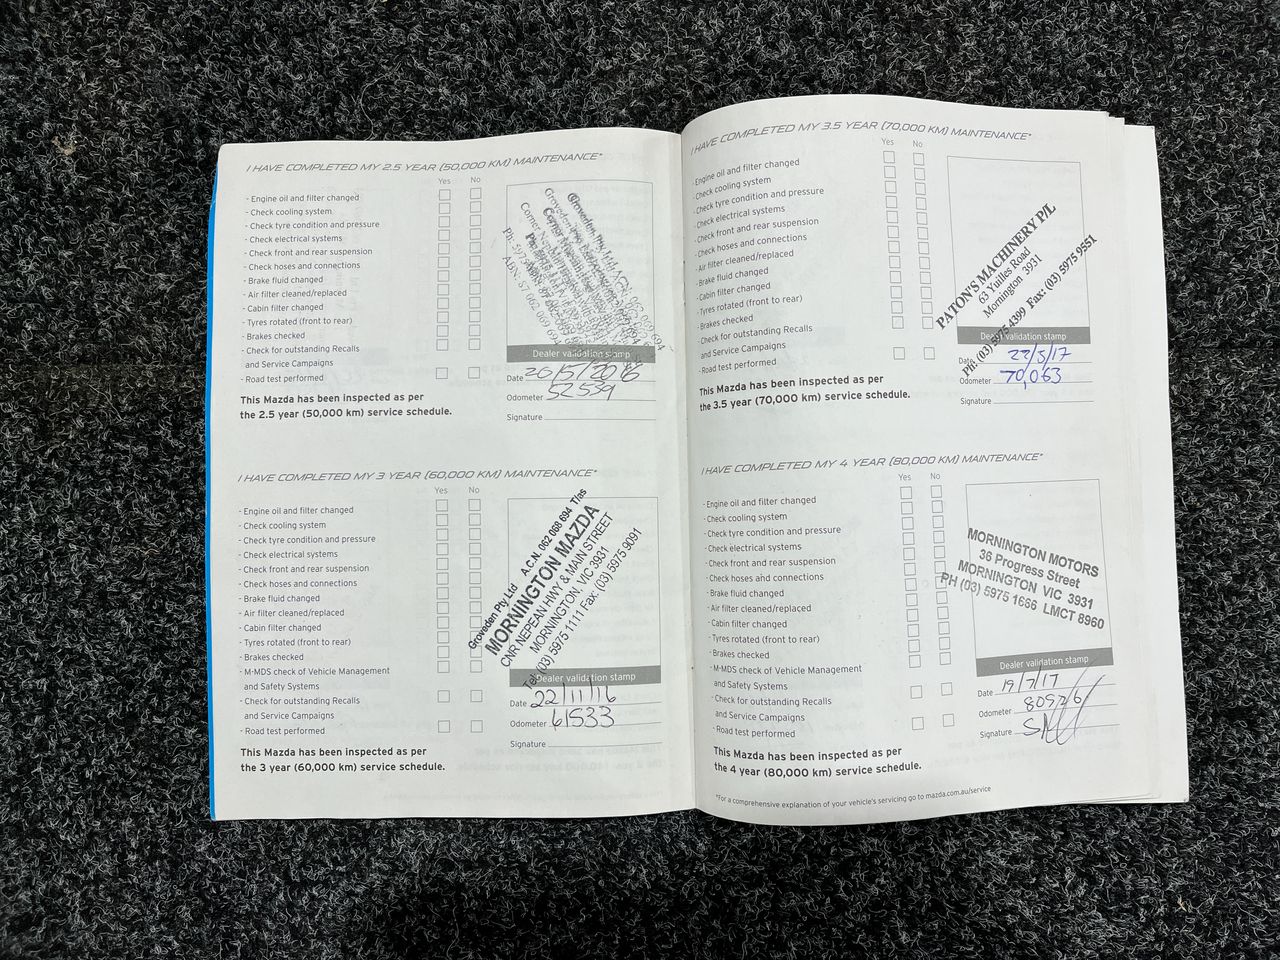 I HAVE COMPLETED MY 2.5 YEAR (50,000 KM) MAINTENANCE*
Yes No
- Engine oil and filter changed
- Check cooling system
- Check tyre condition and pressure
- Check electrical systems
- Check front and rear suspension
- Check hoses and connections
- Brake fluid changed
- Air filter cleaned/replaced
- Cabin filter changed
- Tyres rotated (front to rear)
- Brakes checked
- Check for outstanding Recalls
and Service Campaigns
- Road test performed
This Mazda has been inspected as per
the 2.5 year (50,000 km) service schedule.
Groveden Pty Ltd
Dealer validation stamp
Date 26/5/2016
Odometer 52539
Signature
I HAVE COMPLETED MY 3 YEAR (60,000 KM) MAINTENANCE*
Yes No
- Engine oil and filter changed
- Check cooling system
- Check tyre condition and pressure
- Check electrical systems
- Check front and rear suspension
- Check hoses and connections
- Brake fluid changed
- Air filter cleaned/replaced
- Cabin filter changed
- Tyres rotated (front to rear)
- Brakes checked
- M-MDS check of Vehicle Management
and Safety Systems
- Check for outstanding Recalls
and Service Campaigns
- Road test performed
This Mazda has been inspected as per
the 3 year (60,000 km) service schedule.
Groveden Pty Ltd A.C.N. 062 068 694 T/as
MORNINGTON MAZDA
CNR NEPEAN HWY & MAIN STREET
MORNINGTON, VIC 3931
Tel: (03) 5975 1111 Fax: (03) 5975 9091
Dealer validation stamp
Date 22/11/16
Odometer 61533
Signature
I HAVE COMPLETED MY 3.5 YEAR (70,000 KM) MAINTENANCE*
Yes No
- Engine oil and filter changed
- Check cooling system
- Check tyre condition and pressure
- Check electrical systems
- Check front and rear suspension
- Check hoses and connections
- Air filter cleaned/replaced
- Brake fluid changed
- Cabin filter changed
- Tyres rotated (front to rear)
- Brakes checked
- Check for outstanding Recalls
and Service Campaigns
- Road test performed
This Mazda has been inspected as per
the 3.5 year (70,000 km) service schedule.
PATON'S MACHINERY P/L
63 Yuilles Road
Mornington 3931
Ph: (03) 5975 4399 Fax: (03) 5975 9551
Dealer validation stamp
Date 22/3/17
Odometer 70,063
Signature
I HAVE COMPLETED MY 4 YEAR (80,000 KM) MAINTENANCE*
Yes No
- Engine oil and filter changed
- Check cooling system
- Check tyre condition and pressure
- Check electrical systems
- Check front and rear suspension
- Check hoses and connections
- Brake fluid changed
- Air filter cleaned/replaced
- Cabin filter changed
- Tyres rotated (front to rear)
- Brakes checked
- M-MDS check of Vehicle Management
and Safety Systems
- Check for outstanding Recalls
and Service Campaigns
- Road test performed
This Mazda has been inspected as per
the 4 year (80,000 km) service schedule.
MORNINGTON MOTORS
36 Progress Street
MORNINGTON VIC 3931
PH (03) 5975 1666 LMCT 8960
Dealer validation stamp
Date 19/7/17
Odometer
Signature
*For a comprehensive explanation of your vehicle's servicing go to mazda.com.au/service